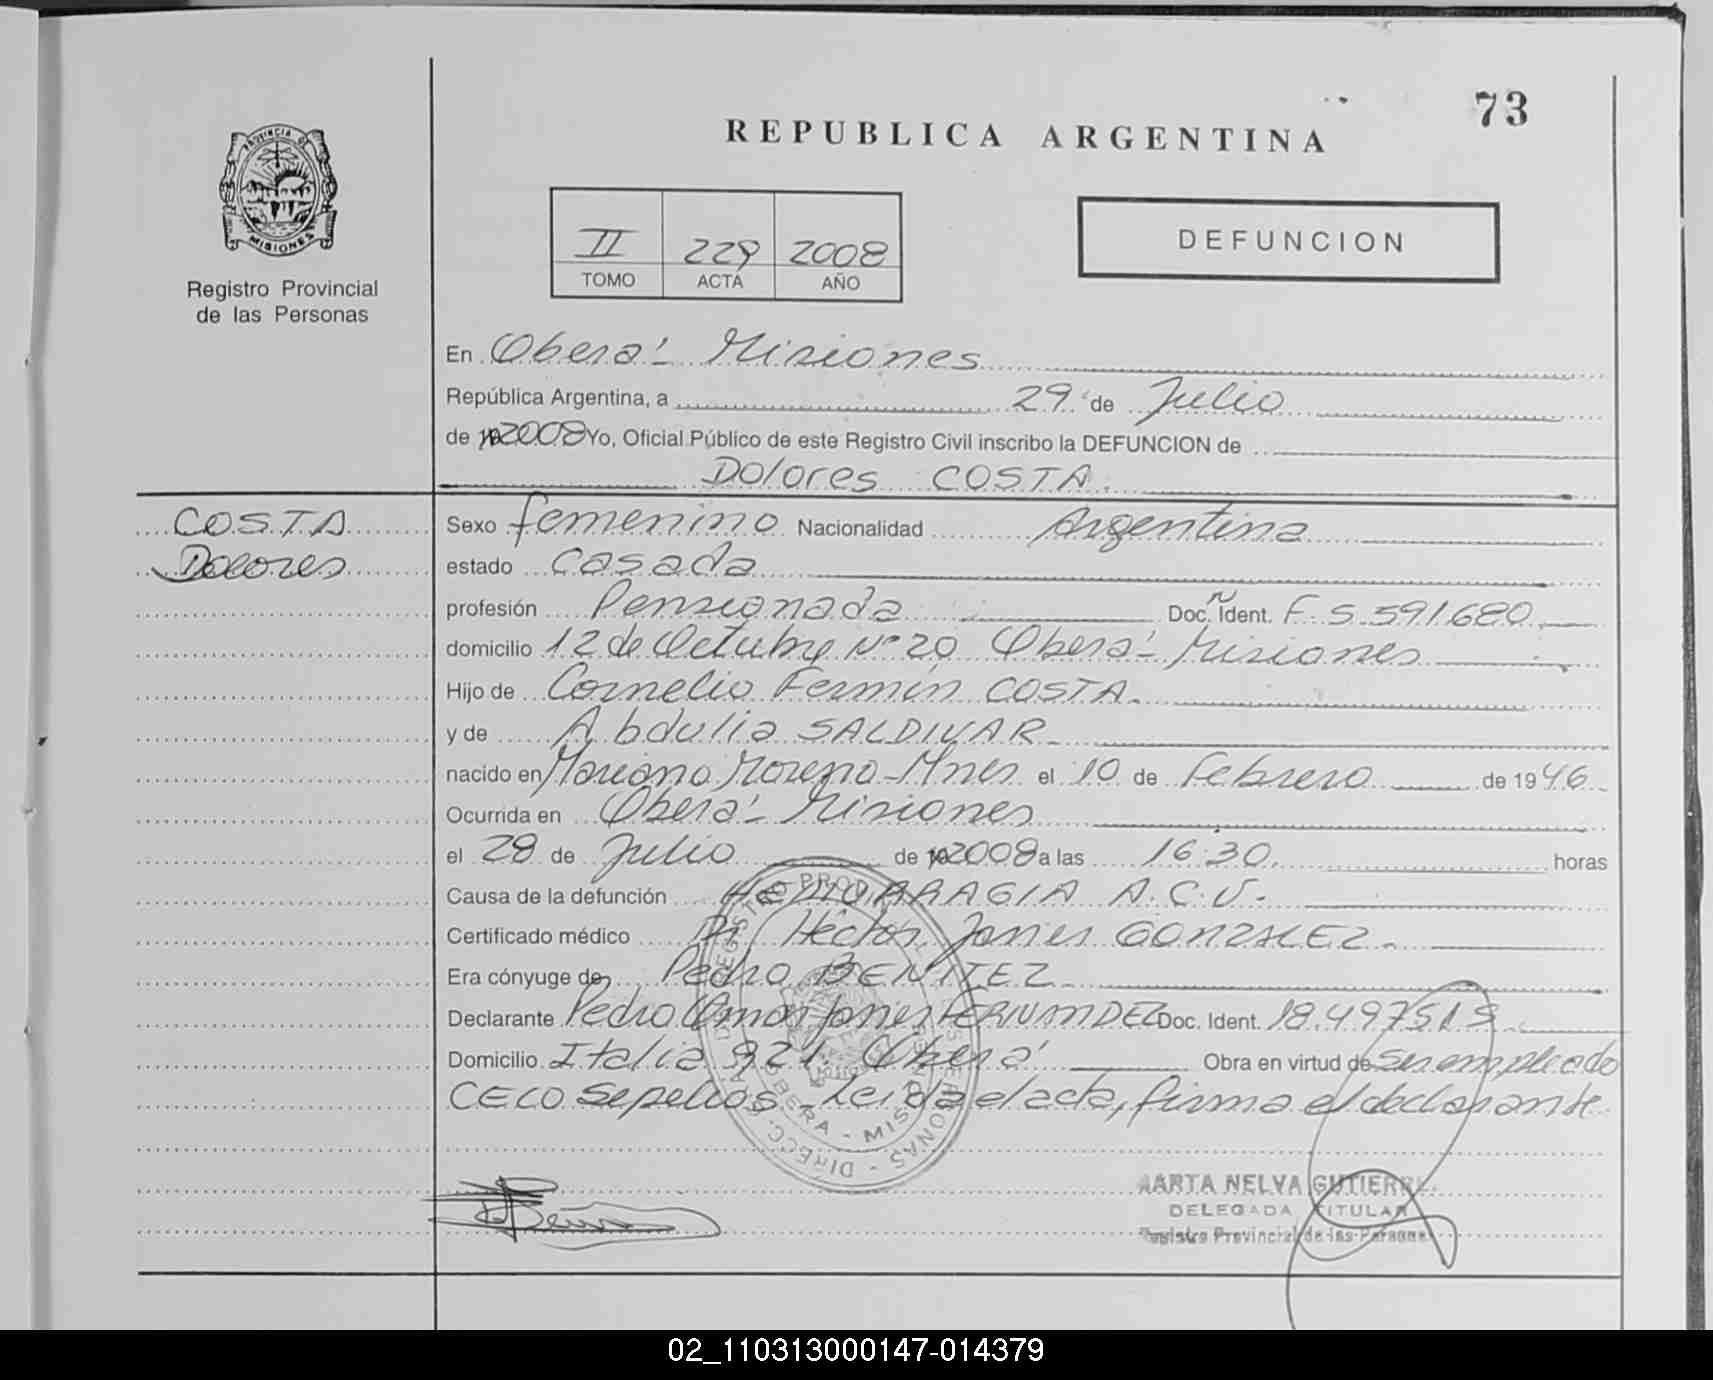 73
REPUBLICA ARGENTINA
PROVINCIA DE
MISIONES
Registro Provincial
de las Personas
II 229 2008
TOMO ACTA AÑO
DEFUNCION
En Oberá - Misiones
República Argentina, a 29 de Julio
de 2008 Yo, Oficial Público de este Registro Civil inscribo la DEFUNCION de
Dolores COSTA.
COSTA
Dolores
Sexo femenino Nacionalidad Argentina
estado casada
profesión Pensionada Doc. Ident. F. 5.591.680
domicilio 12 de Octubre Nº 20 Oberá - Misiones
Hijo de Cornelio Fermín COSTA.
y de Abdulia SALDIVAR
nacido en Mariano Moreno - Mnes el 10 de Febrero de 1946
Ocurrida en Oberá - Misiones
el 28 de Julio de 2008 a las 16:30. horas
Causa de la defunción HEMORRAGIA A.C.V.
Certificado médico Dr Héctor Javier GONZALEZ.
Era cónyuge de Pedro BENITEZ
Declarante Pedro Omar Javier FERNANDEZ Doc. Ident. 18.497.513
Domicilio Italia 921. Oberá Obra en virtud de ser empleado
CECO Sepelios - Leida el acta, firma el declarante
MARTA NELVA GUTIERREZ
DELEGADA TITULAR
Registro Provincial de las Personas
02_110313000147-014379